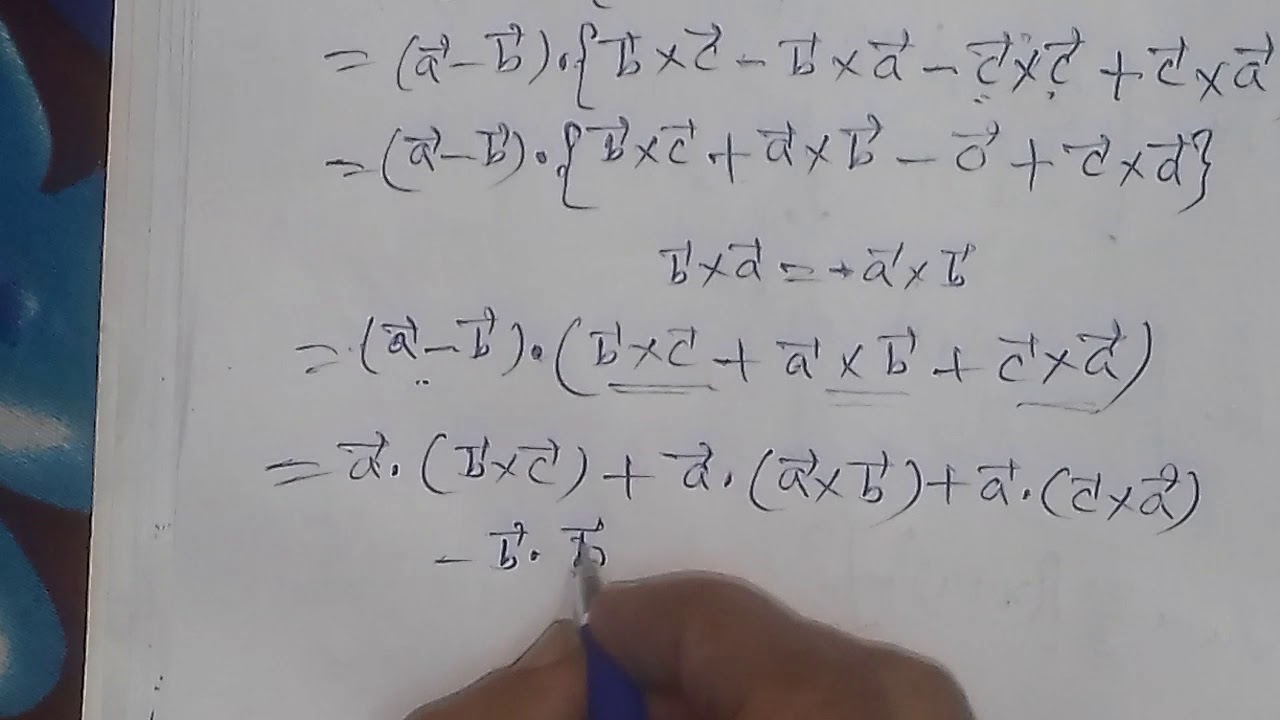 = (a⃗ − b⃗)·{b⃗ × c⃗ − b⃗ × a⃗ − c⃗ × c⃗ + c⃗ × a⃗
= (a⃗ − b⃗)·{b⃗ × c⃗ + a⃗ × b⃗ − 0⃗ + c⃗ × a⃗}
b⃗ × a⃗ = - a⃗ × b⃗
= (a⃗ − b⃗)·(b⃗ × c⃗ + a⃗ × b⃗ + c⃗ × a⃗)
= a⃗·(b⃗ × c⃗) + a⃗·(a⃗ × b⃗) + a⃗·(c⃗ × a⃗)
− b⃗· b⃗